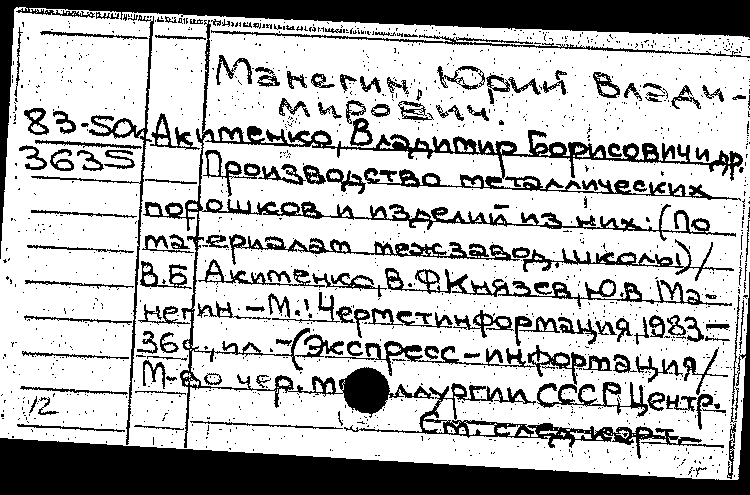 Манегин, Юрий Влади-
мирович.
83-50к Акименко, Владимир Борисович и др.
3635 Производство металлических
порошков и изделий из них: (По
материалам межзавод. школы) /
В.Б. Акименко, В.Ф. Князев, Ю.В. Ма-
негин. – М.: Черметинформация, 1983. –
36с., ил. – (Экспресс-информация /
М-во чер. металлургии СССР, Центр.
12 См. след. карт.